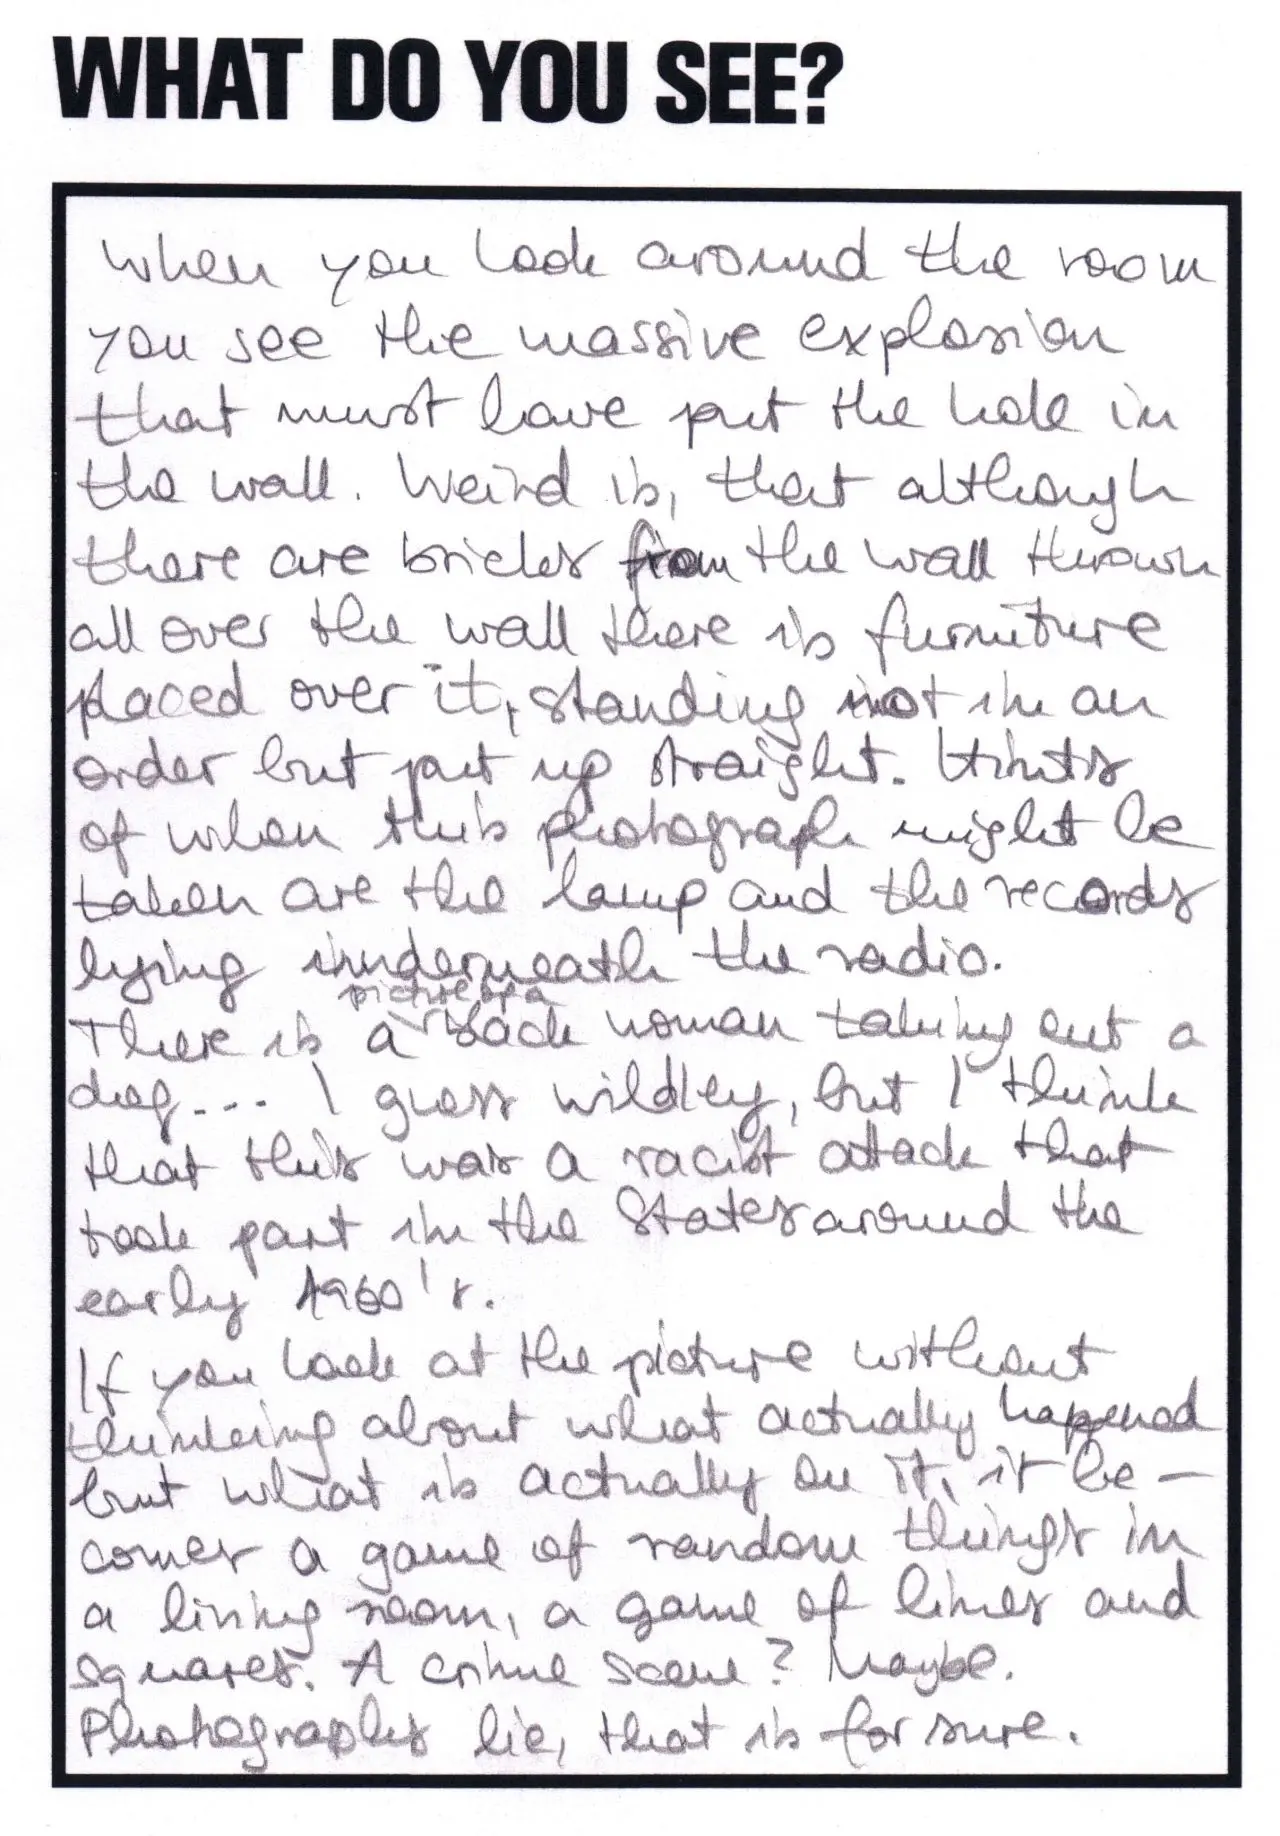 WHAT DO YOU SEE?
When you look around the room
you see the massive explosion
that must have put the hole in
the wall. Weird is, that although
there are bricks from the wall thrown
all over the wall there is furniture
placed over it, standing not in an
order but put up straight. Hints
of when this photograph might be
taken are the lamp and the records
lying underneath the radio.
picture of a
There is a black woman taking out a
dog... I guess wildley, but I think
that this was a racist attack that
took part in the States around the
early 1960's.
If you look at the picture without
thinking about what actually happened
but what is actually on it, it be-
comes a game of random things in
a living room, a game of lines and
squares. A crime scene? Maybe.
Photographs lie, that is for sure.